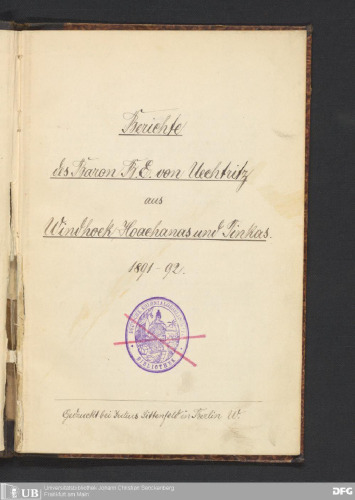 Berichte
des Baron R. E. von Uechtritz
aus
Windhoek Hoachanas und Pinkas.
1891-92.
DEUTSCHE KOLONIALGESELLSCHAFT
BIBLIOTHEK
Gedruckt bei Julius Sittenfeld in Berlin W
UB
Universitätsbibliothek Johann Christian Senckenberg
Frankfurt am Main
DFG